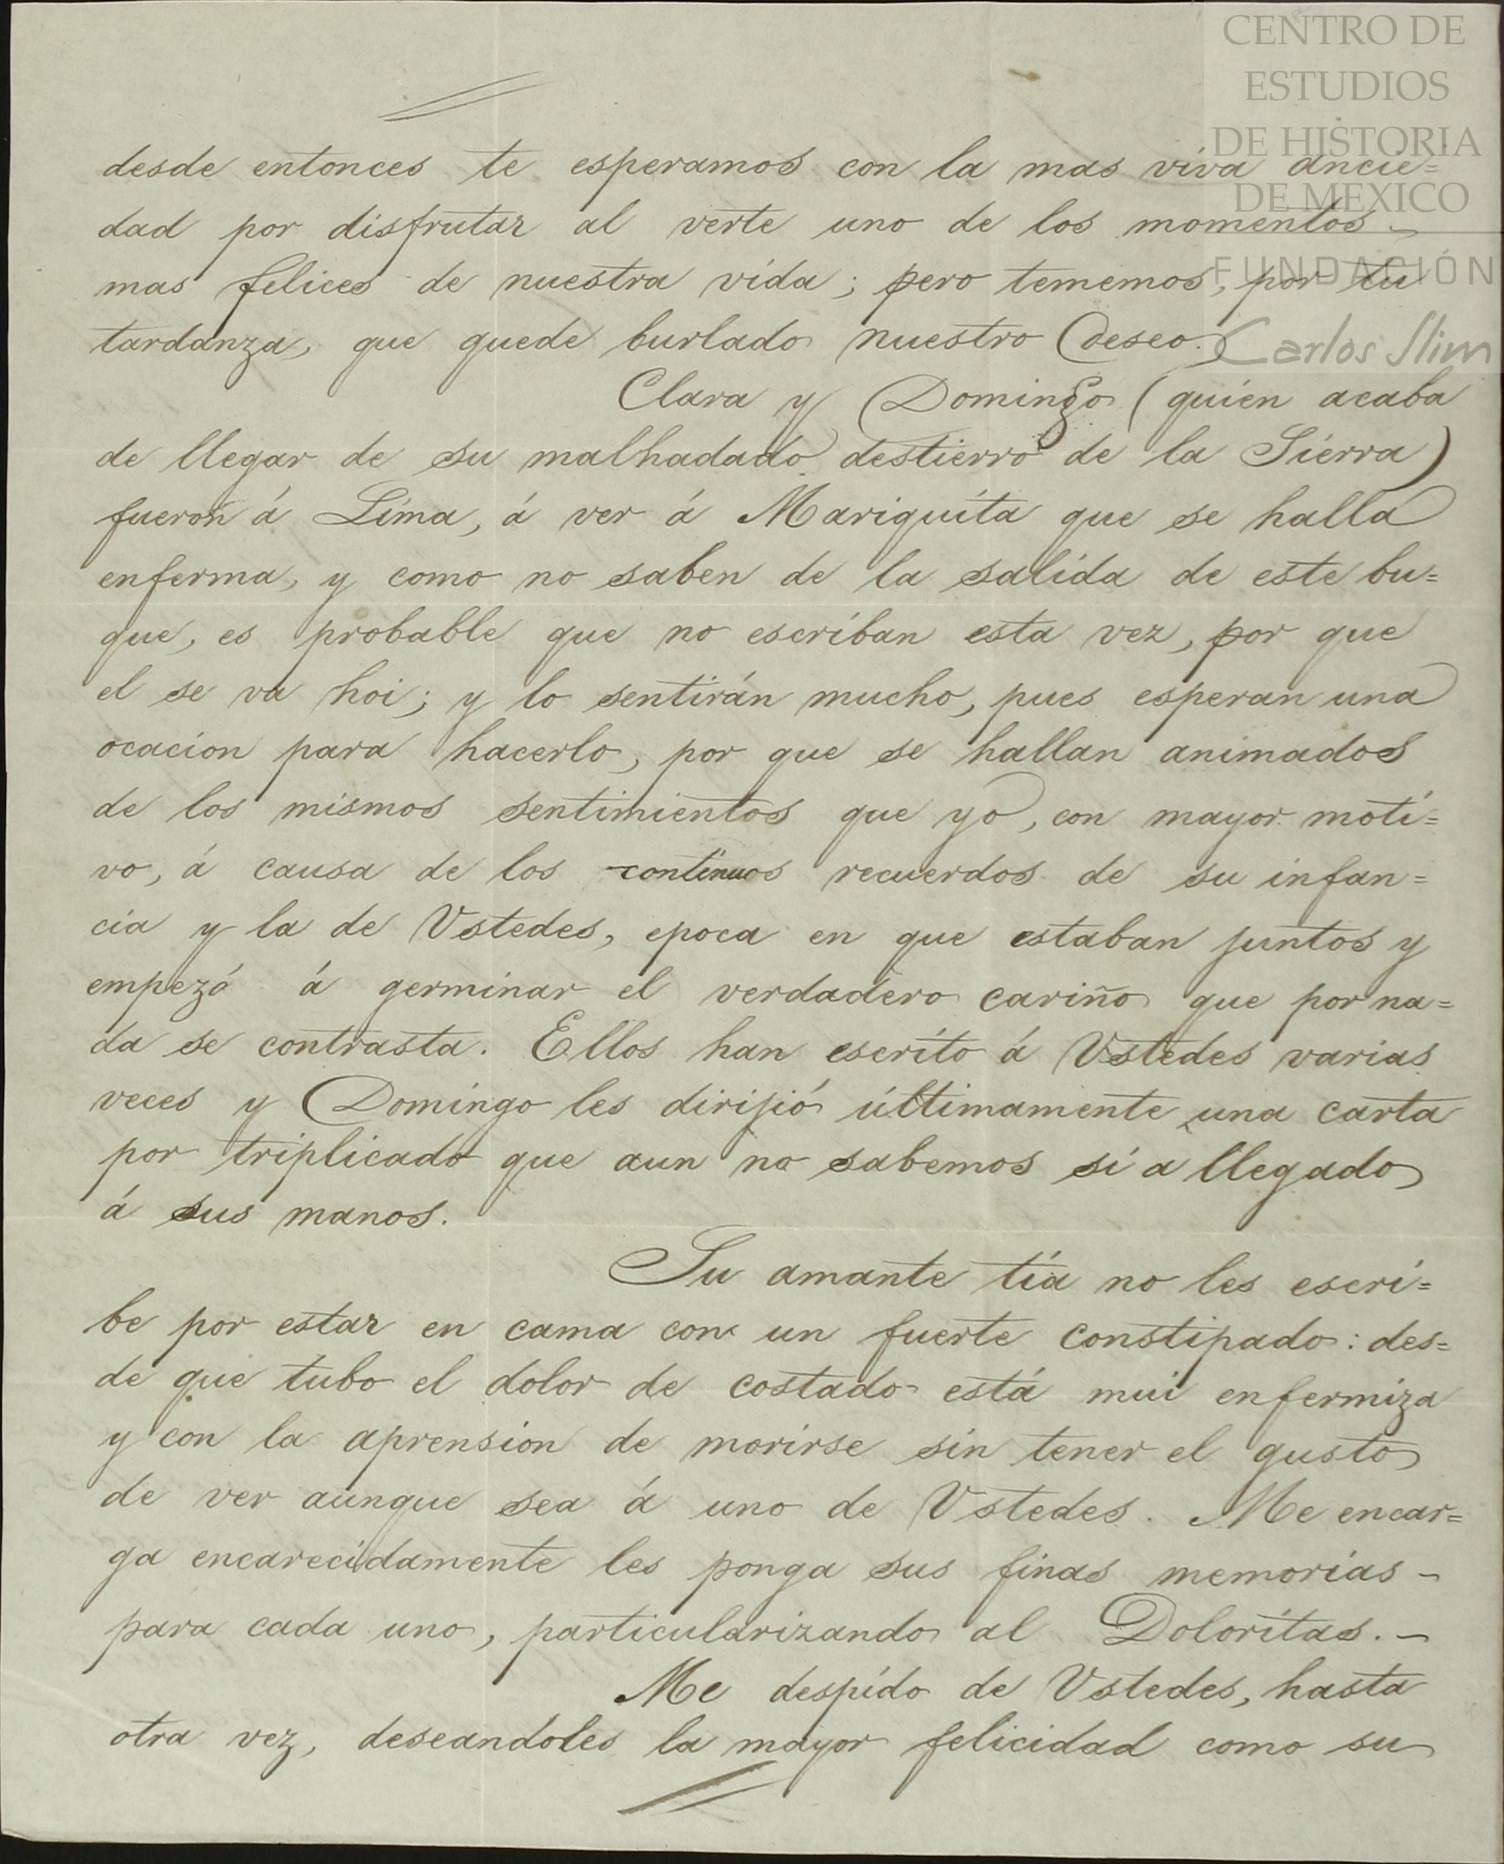 CENTRO DE
ESTUDIOS
DE HISTORIA
DE MEXICO
FUNDACIÓN
Carlos Slim
desde entonces te esperamos con la mas viva ancie=
dad por disfrutar al verte uno de los momentos
mas felices de nuestra vida; pero tememos, por tu
tardanza, que quede burlado nuestro deseo.
Clara y Domingo (quien acaba
de llegar de su malhadado destierro de la Sierra)
fueron á Lima, á ver á Mariquita que se halla
enferma, y como no saben de la salida de este bu=
que, es probable que no escriban esta vez, por que
el se va hoi; y lo sentirán mucho, pues esperan una
ocacion para hacerlo, por que se hallan animados
de los mismos sentimientos que yo, con mayor moti=
vo, á causa de los continuos recuerdos de su infan=
cia y la de Ustedes, epoca en que estaban juntos y
empezó á germinar el verdadero cariño que por na=
da se contrasta. Ellos han escrito á Ustedes varias
veces y Domingo les dirijió últimamente una carta
por triplicado que aun no sabemos si a llegado
á sus manos.
Su amante tía no les escri=
be por estar en cama con un fuerte constipado: des=
de que tubo el dolor de costado está mui enfermiza
y con la aprension de morirse sin tener el gusto
de ver aunque sea á uno de Ustedes. Me encar=
ga encarecidamente les ponga sus finas memorias –
para cada uno, particularizando al Doloritas. –
Me despido de Ustedes, hasta
otra vez, deseandoles la mayor felicidad como su